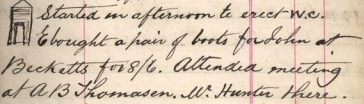 Started in afternoon to erect W.C.
E bought a pair of boots for John at
Becketts for 8/6. Attended meeting
at A B Thomasen. Mr Hunter there.